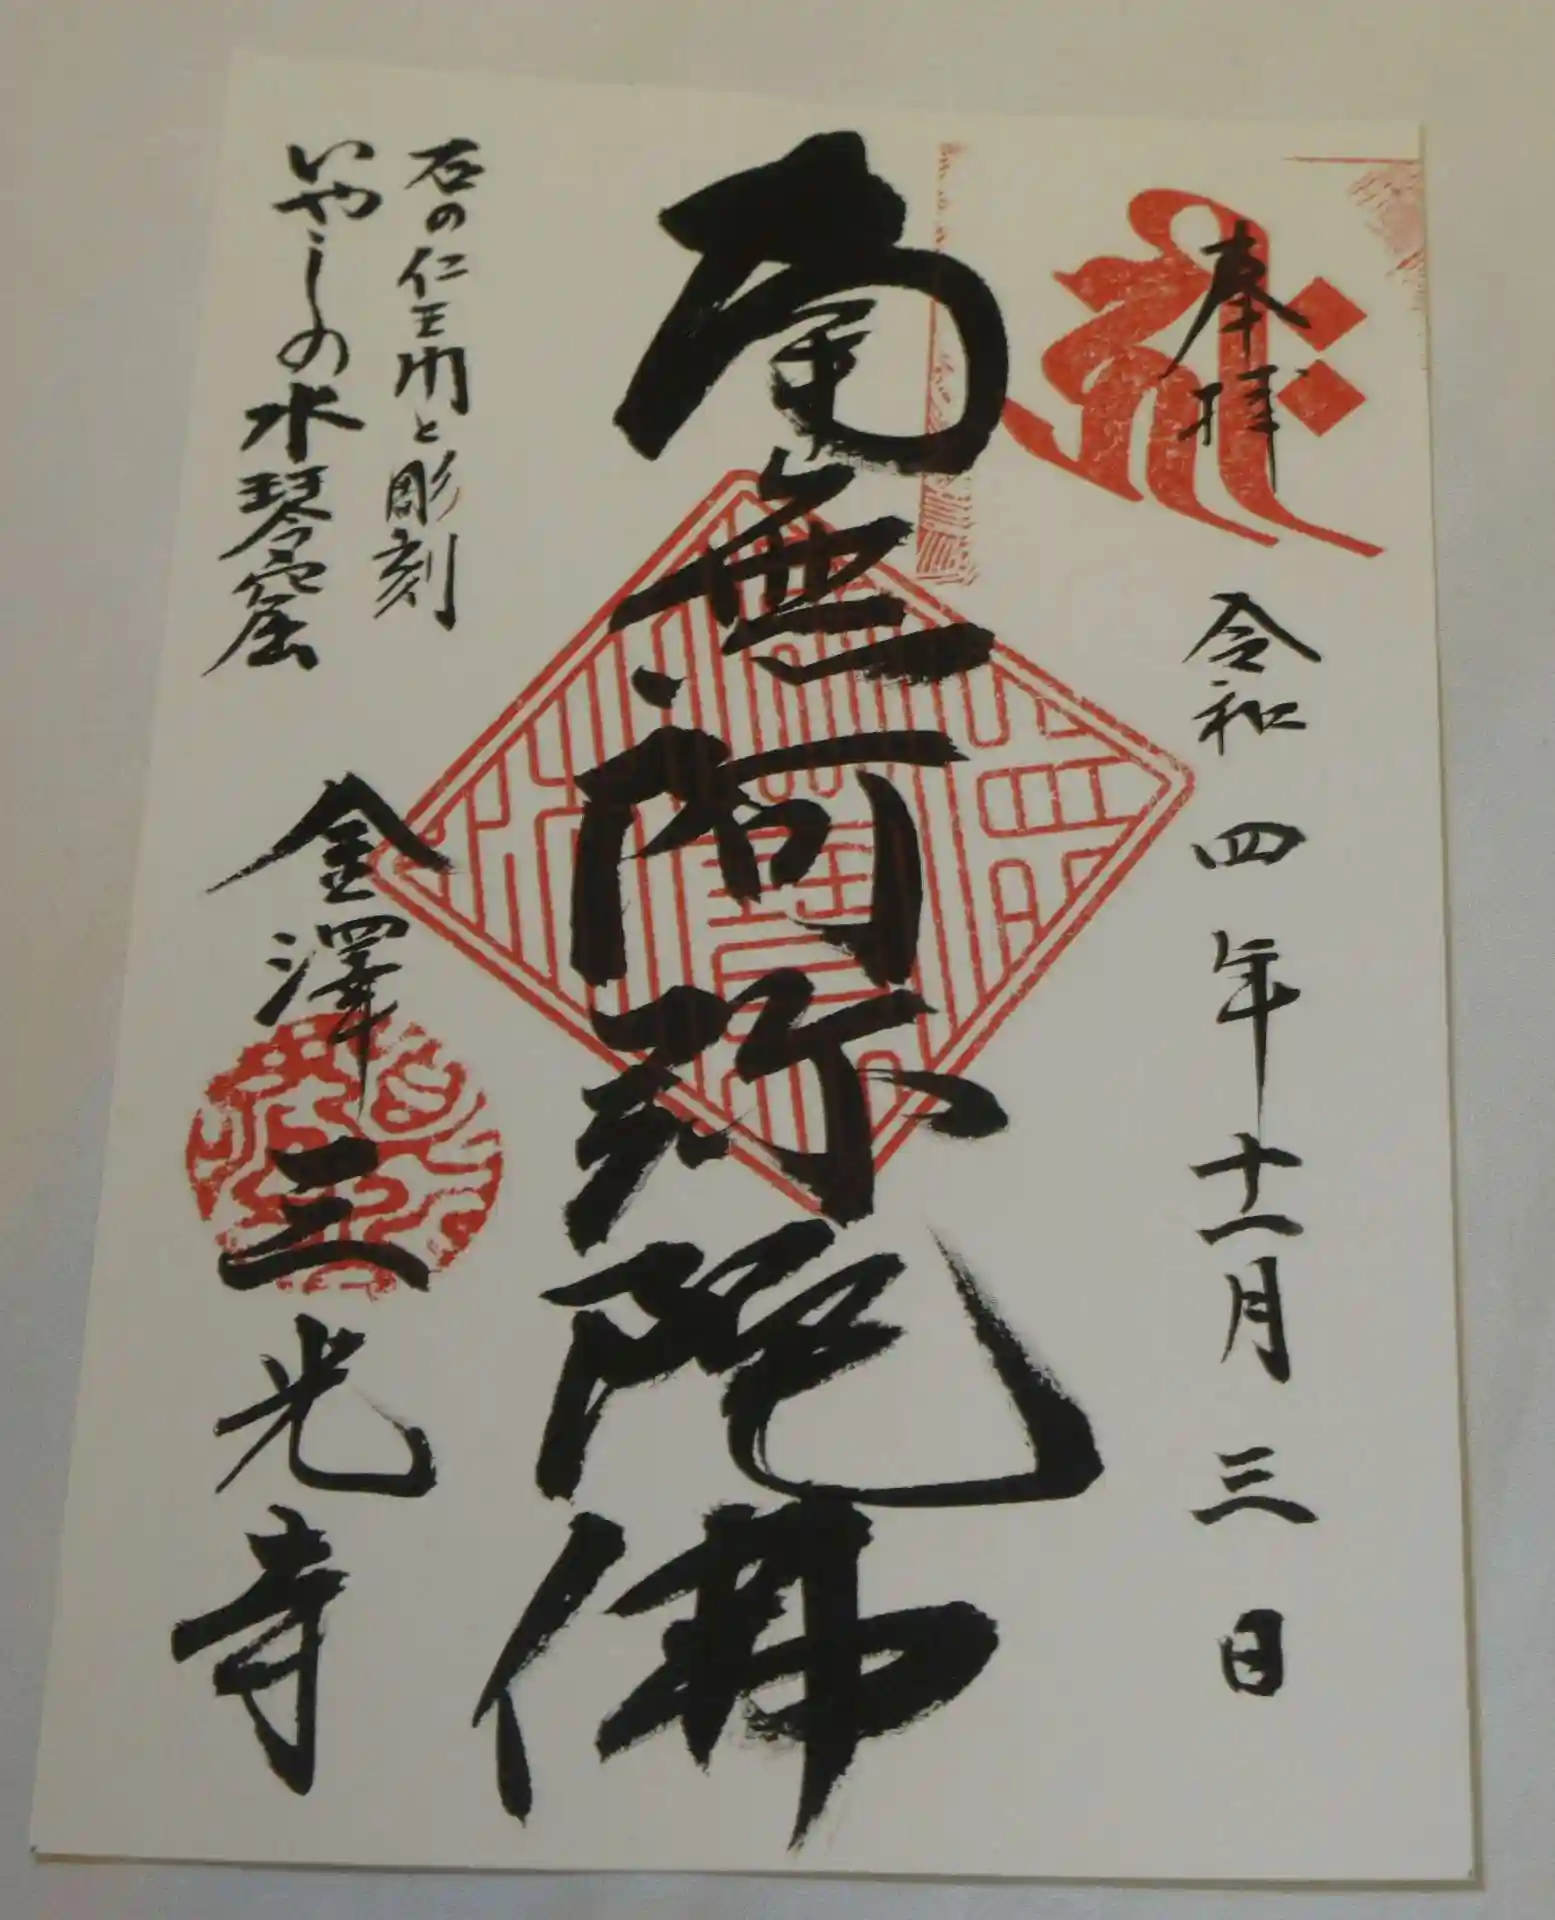 奉拝
令和四年十一月三日
南無阿弥陀佛
石の仁王門と彫刻
いやしの水琴窟
金澤三光寺